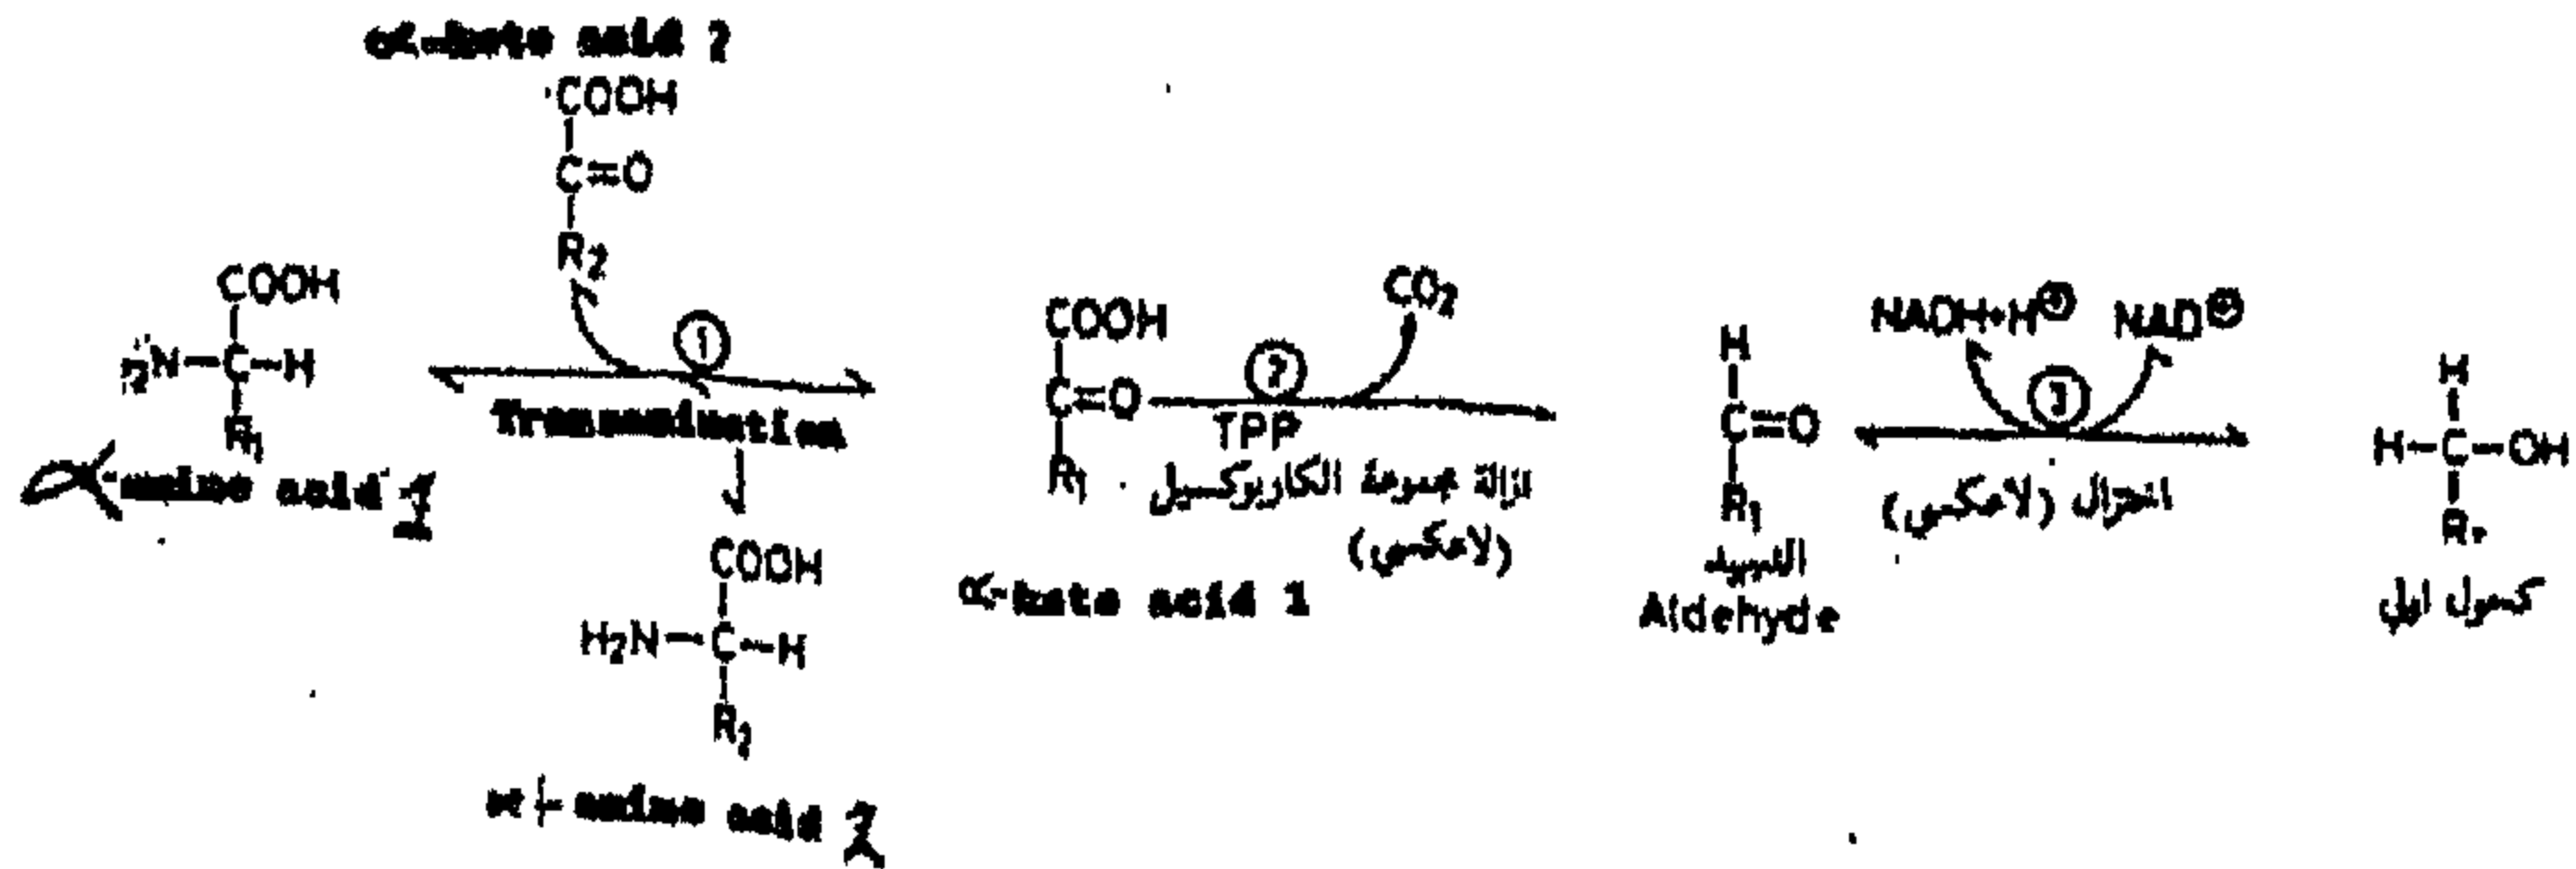 α-keto acid 2
COOH
C=O
R2
COOH
H2N-C-H
R1
α-amino acid 1
①
Transamination
COOH
H2N-C-H
R2
α-amino acid 2
COOH
C=O
R1
α-keto acid 1
②
CO2
TPP
ازالة مجموعة الكاربوكسيل
(لاعكسي)
H
C=O
R1
Aldehyde
NADH+H⊕
NAD⊕
③
اختزال (لاعكسي)
H
H-C-OH
كحول اولي